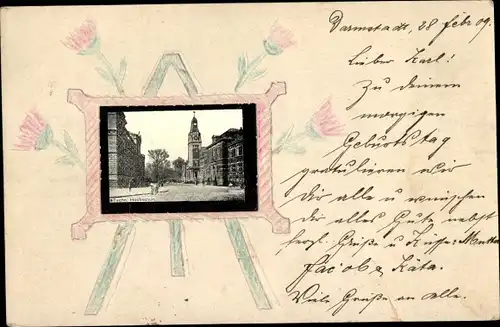 Darmstadt, 28 febr 09.
Lieber Karl!
Zu deinem
morgigen
Geburtstag
gratulieren wir
dir alle u wünschen
dir alles Gute nebst
herzl. Grüße u Küsse: Mutter
Jacob & Käta.
Viele Grüße an alle.
Techn. Hochschule